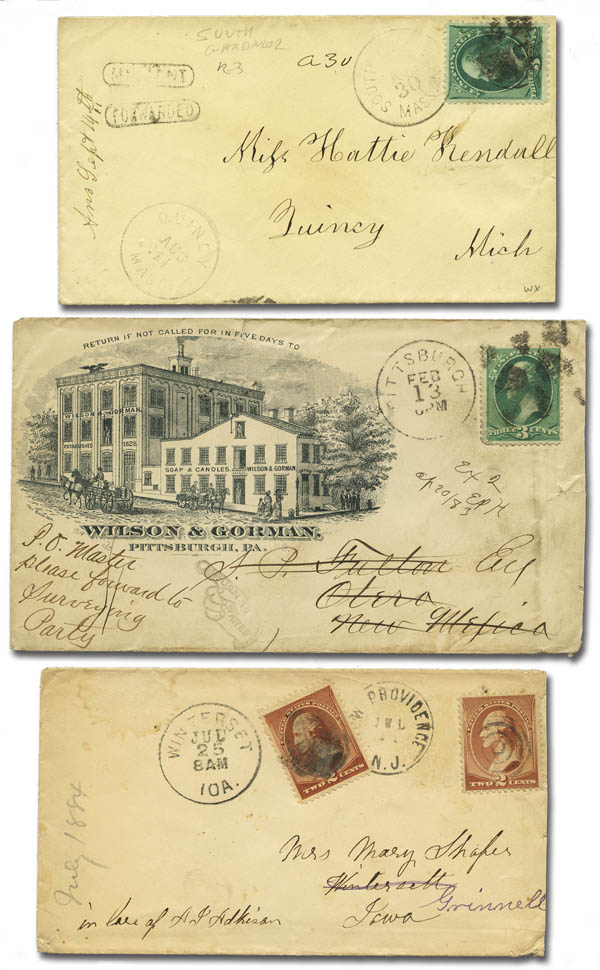 SOUTH
GARDNER
A 30
R3
MISSENT
FORWARDED
Ans Sept 14th
SOUTH
30
MASS
Miss Hattie Kendall
Quincy
Mich
QUINCY
AUG
WX
RETURN IF NOT CALLED FOR IN FIVE DAYS TO
WILSON & GORMAN.
ESTABLISHED 1828
SOAP & CANDLES. WILSON & GORMAN.
WILSON & GORMAN,
PITTSBURGH, PA.
PITTSBURGH
FEB
13
6PM
THREE CENTS
EX 2
EPH
ap 20/83
P.O. Master
please forward to
Surveying
Party
A. P. Fulton Esq
Otero
New Mexico
WINTERSET
JUL
25
8AM
IOA.
UNITED STATES POSTAGE
TWO 2 CENTS
W PROVIDENCE
JUL
N.J.
UNITED STATES POSTAGE
TWO 2 CENTS
July 1884
Mrs Mary Shafer
Wintersett
Grinnell
Iowa
in care of A J Adkison